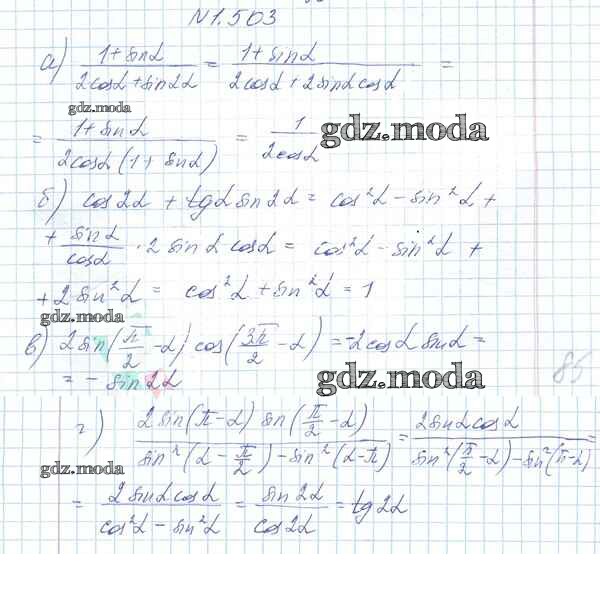 N1.503
а) (1+sinα)/(2cosα+sin2α) = (1+sinα)/(2cosα+2sinαcosα) =
gdz.moda
= (1+sinα)/(2cosα(1+sinα)) = 1/(2cosα)
gdz.moda
б) cos2α + tgα sin2α = cos²α - sin²α +
+ sinα/cosα · 2sinα cosα = cos²α - sin²α +
+ 2sin²α = cos²α + sin²α = 1
gdz.moda
в) 2sin(π/2 - α) cos(3π/2 - α) = -2cosα sinα =
= - sin2α
gdz.moda
85
г) (2sin(π-α) sin(π/2 - α))/(sin²(α - π/2) - sin²(α-π)) = (2sinα cosα)/(sin²(π/2 - α) - sin²(π-α)) =
gdz.moda
= (2sinα cosα)/(cos²α - sin²α) = sin2α/cos2α = tg2α